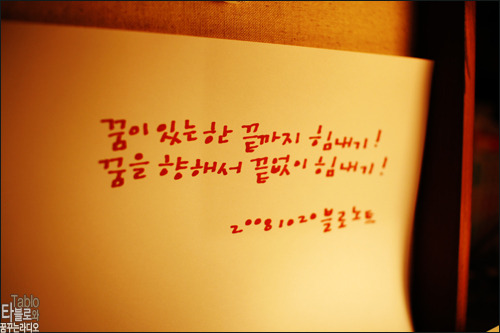 꿈이 있는 한 끝까지 힘내기!
꿈을 향해서 끝없이 힘내기!
20081020 블로노트
Tablo
타블로와
꿈꾸는라디오